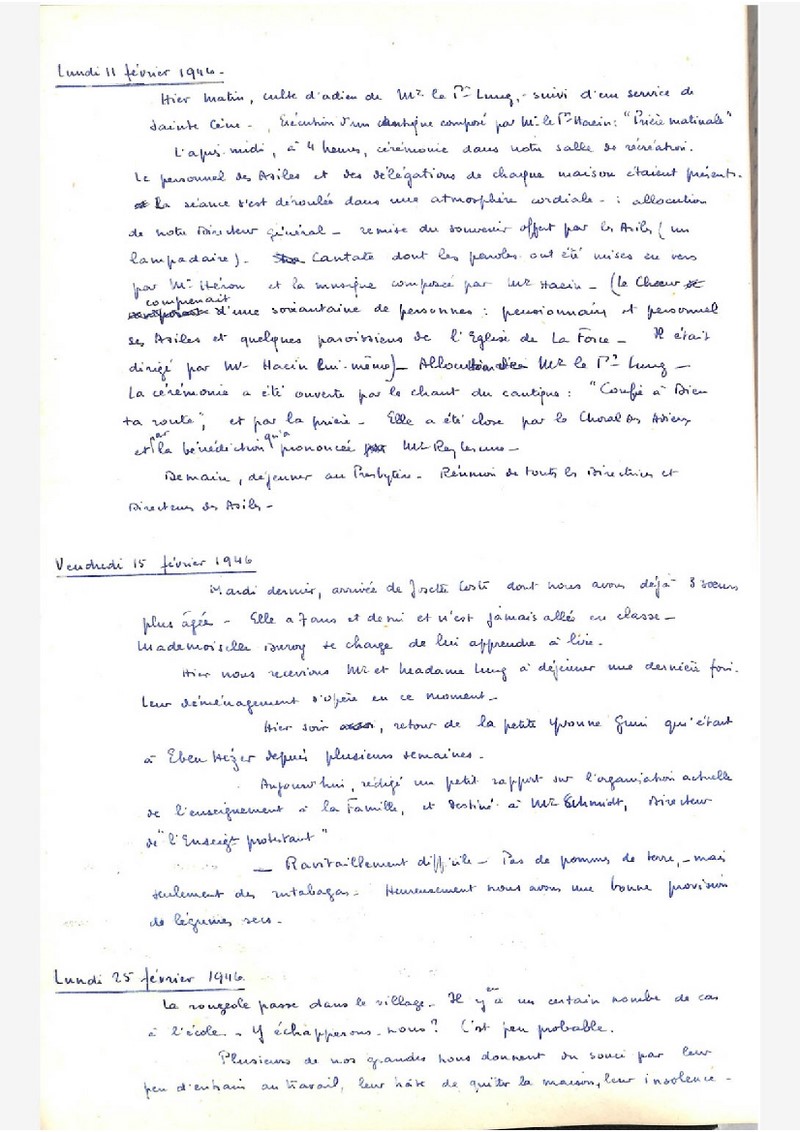 Lundi 11 février 1946.
Hier matin, culte d'adieu de Mr. le Pr Lung, suivi d'un service de
Sainte Cène. Exécution d'un cantique composé par Mr. le Pr Hacin : "Prière matinale"
L'après-midi, à 4 heures, cérémonie dans notre salle de récréation.
Le personnel des Asiles et des délégations de chaque maison étaient présents.
La séance s'est déroulée dans une atmosphère cordiale - : allocution
de notre Directeur général - remise du souvenir offert par les Asiles (un
lampadaire). Cantate dont les paroles ont été mises en vers
par Mr. Héron et la musique composée par Mr. Hacin - (le Choeur
comprenait
d'une soixantaine de personnes : pensionnaires et personnel
des Asiles et quelques paroissiens de l'Eglise de La Force - Il était
dirigé par Mr. Hacin lui-même) - Allocution de Mr. le Pr Lung -
La cérémonie a été ouverte par le chant du cantique : "Confie à Dieu
ta route", et par la prière - Elle a été close par le Choral des Adieux
et par la bénédiction qu'a prononcée Mr.
Demain, déjeuner au Presbytère. Réunion de toutes les Directrices et
Directeurs des Asiles -
Vendredi 15 février 1946
Mardi dernier, arrivée de Josette Costé dont nous avons déjà 3 soeurs
plus âgée - Elle a 7 ans et demi et n'est jamais allée en classe -
Mademoiselle se charge de lui apprendre à lire.
Hier nous recevions Mr. et Madame Lung à déjeuner une dernière fois.
Leur déménagement s'opère en ce moment -
Hier soir, retour de la petite Yvonne qui était
à Eben Hézer depuis plusieurs semaines.
Aujourd'hui, rédigé un petit rapport sur l'organisation actuelle
de l'enseignement à la Famille, et destiné à Mr. Schmidt, Directeur
de "l'Enseigt protestant"
- Ravitaillement difficile - Pas de pommes de terre, - mais
seulement des rutabagas. Heureusement nous avons une bonne provision
de légumes secs -
Lundi 25 février 1946
La rougeole passe dans le village. Il y en a un certain nombre de cas
à l'école. - Y échapperons-nous ? C'est peu probable.
Plusieurs de nos grandes nous donnent du souci par leur
peu d'entrain au travail, leur hâte de quitter la maison, leur insolence -